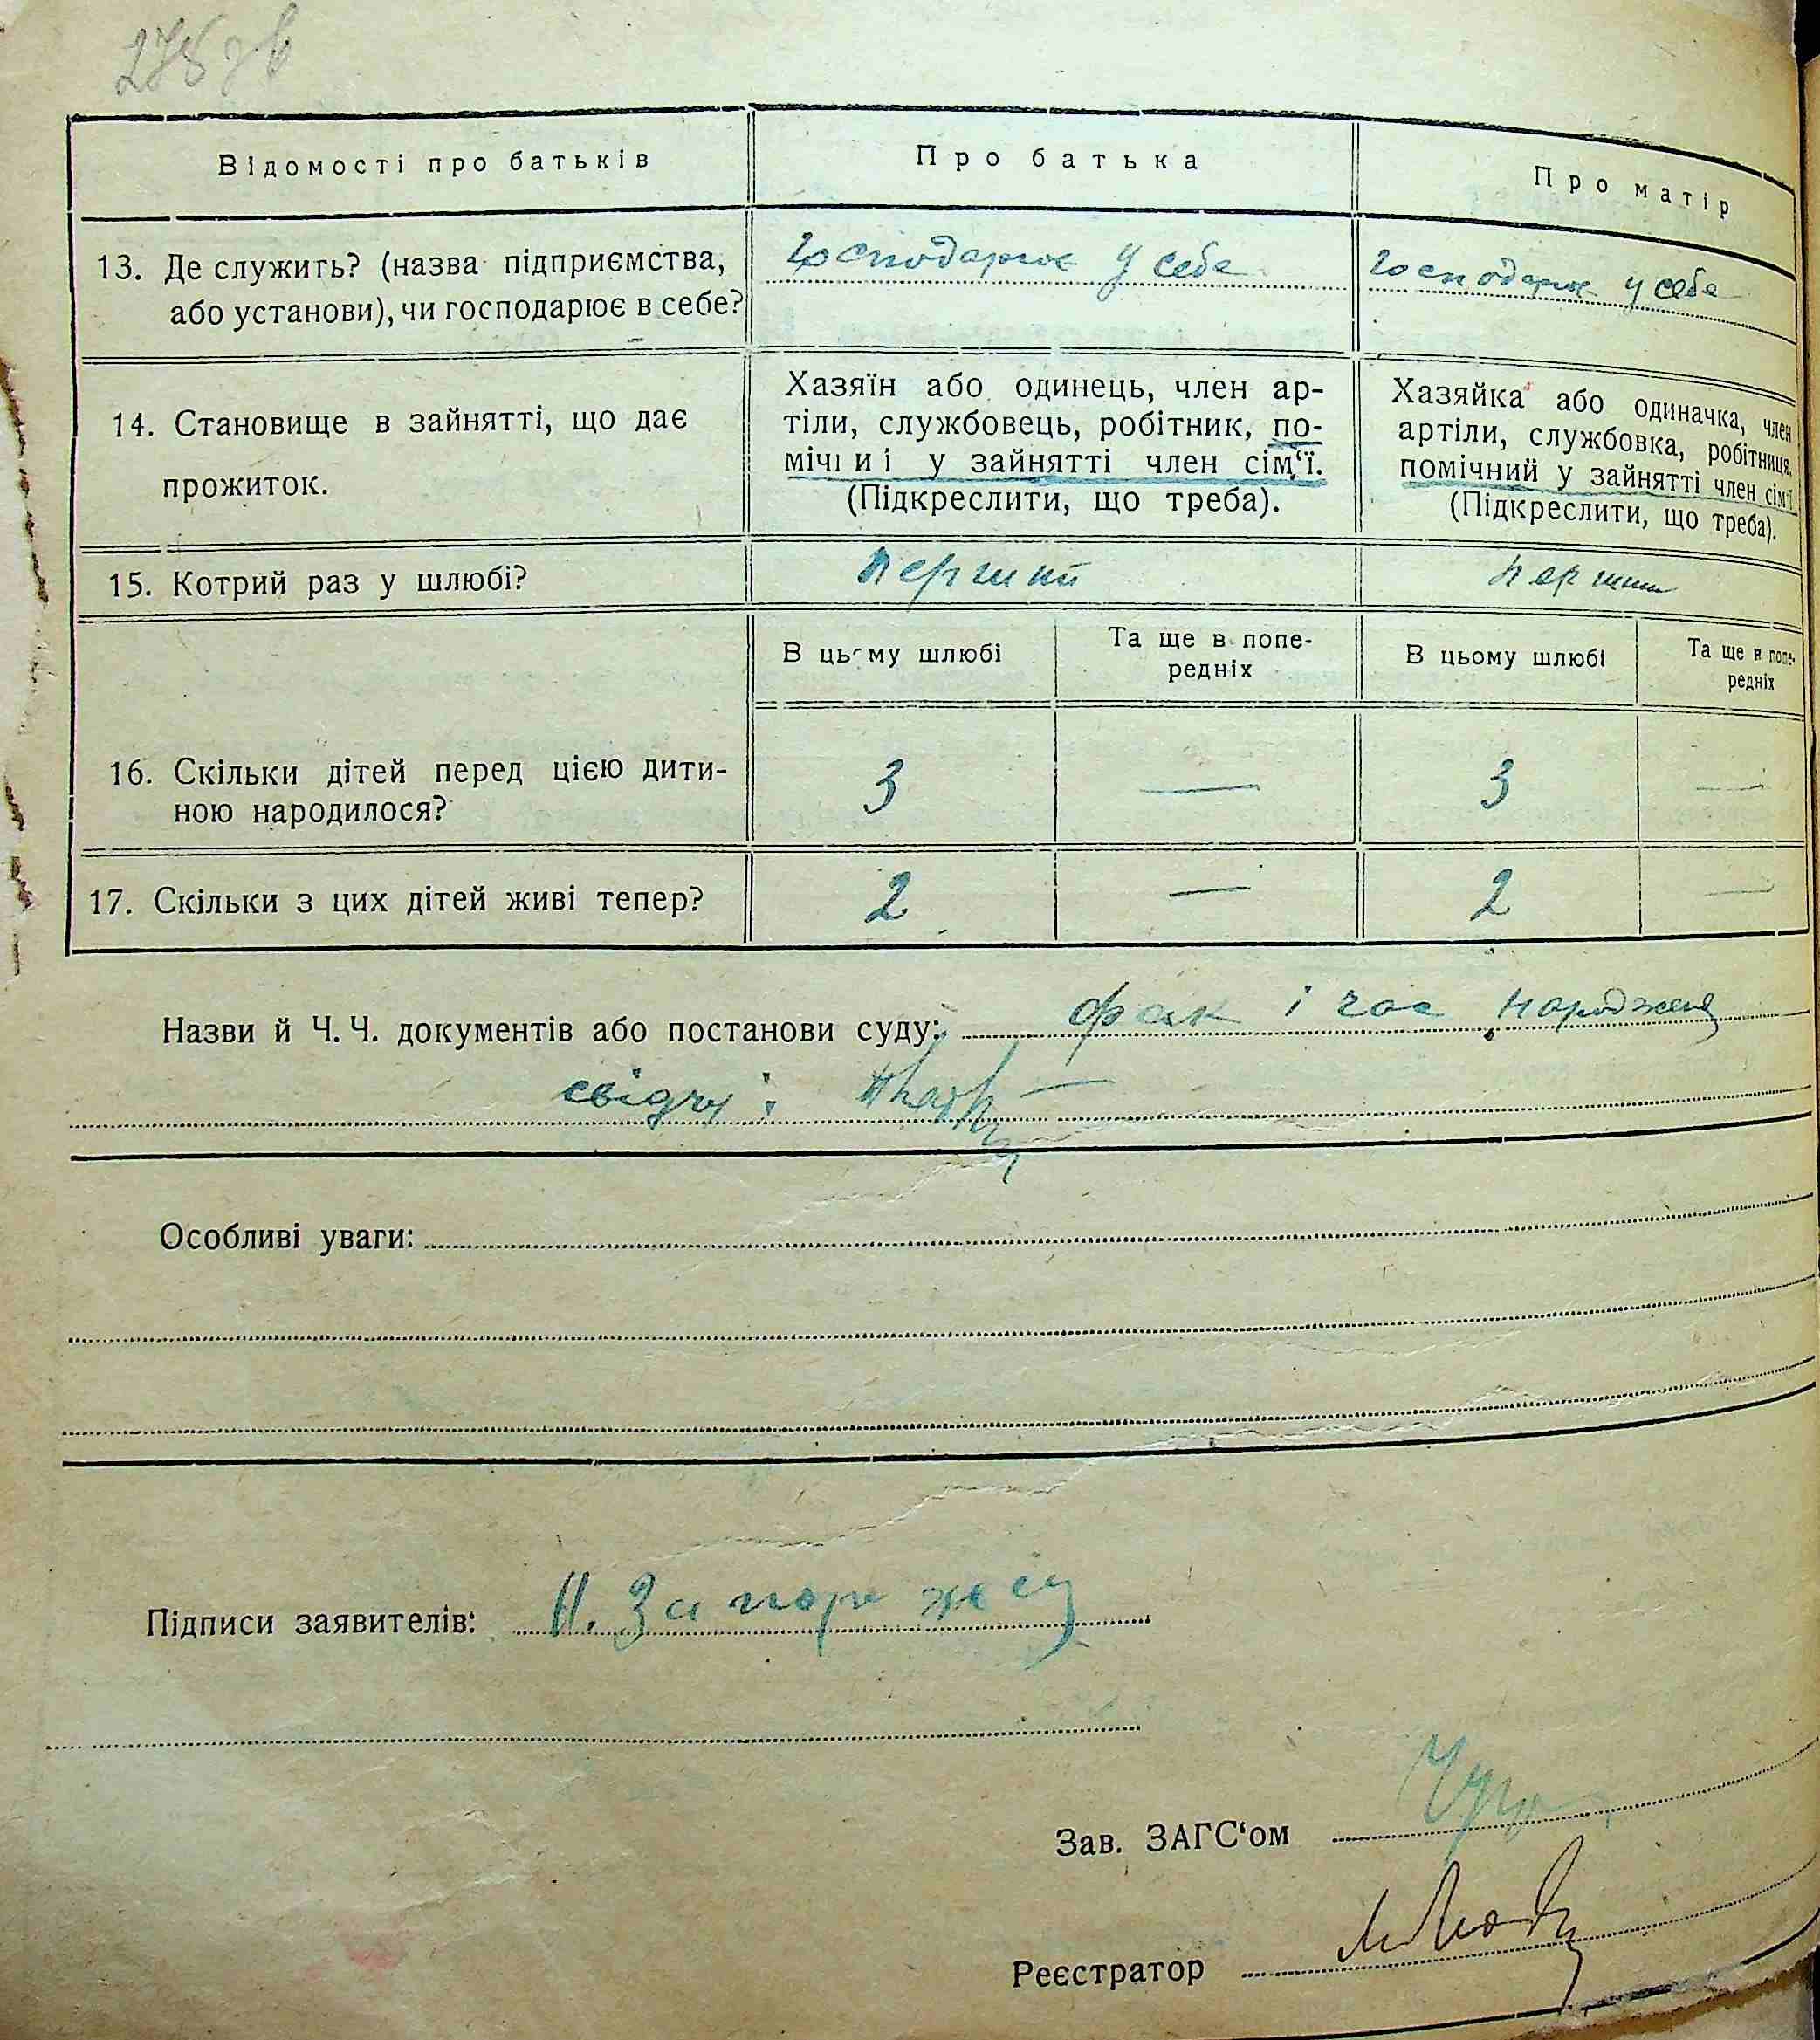 275 зв
Відомості про батьків
Про батька
Про матір
13. Де служить? (назва підприємства,
або установи), чи господарює в себе?
господарює у себе
господарює у себе
14. Становище в зайнятті, що дає
прожиток.
Хазяїн або одинець, член ар-
тіли, службовець, робітник, по-
мічниі у зайнятті член сім‘ї.
(Підкреслити, що треба).
Хазяйка або одиначка, член
артіли, службовка, робітниця,
помічний у зайнятті член сім‘ї.
(Підкреслити, що треба).
15. Котрий раз у шлюбі?
перший
перший
В цьому шлюбі
Та ще в попе-
редніх
В цьому шлюбі
Та ще в попе-
редніх
16. Скільки дітей перед цією дити-
ною народилося?
3 — 3 —
17. Скільки з цих дітей живі тепер?
2 — 2 —
Назви й Ч. Ч. документів або постанови суду: фак і час народженя
свідчу:
Особливі уваги:
Підписи заявителів: Н. Запорожец
Зав. ЗАГС‘ом
Реєстратор